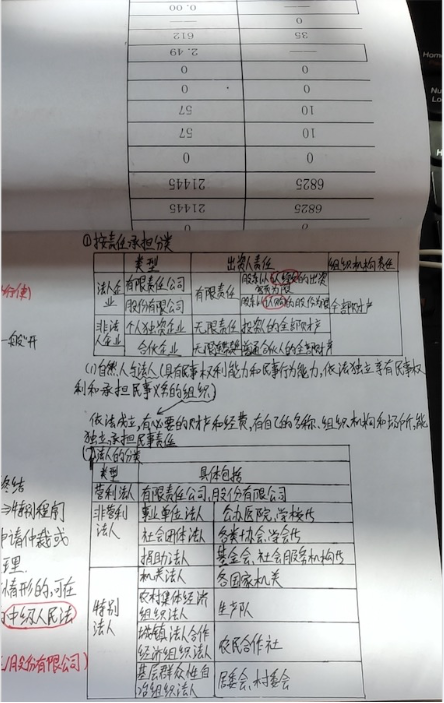 0.00
—
612
35
2.49
—
0
0
0
0
57
10
57
10
0
0
21445
6825
21445
6825
①按责任承担分类
类型 出资人责任 组织机构责任
法人企业 有限责任公司 有限责任 股东以认缴的出资额为限 全部财产
股份有限公司 股东以认购的股份为限
非法人企业 个人独资企业 无限责任 投资人的全部财产
合伙企业 无限连带 普通合伙人的全部财产
(1)自然人与法人(具有民事权利能力和民事行为能力,依法独立享有民事权
利和承担民事义务的组织)
依法成立,有必要的财产和经费,有自己的名称、组织机构和场所,能
独立承担民事责任
法人的分类
类型 具体包括
营利法人 有限责任公司,股份有限公司
非营利法人 事业单位法人 公办医院,学校等
社会团体法人 各类协会,学会等
捐助法人 基金会,社会服务机构等
特别法人 机关法人 各国家机关
农村集体经济组织法人 生产队
城镇法合作经济组织法人 农民合作社
基层群众性自治组织法人 居委会,村委会
终结
特别程序
申请仲裁或
理
情形的,可在
中级人民法
股份有限公司)